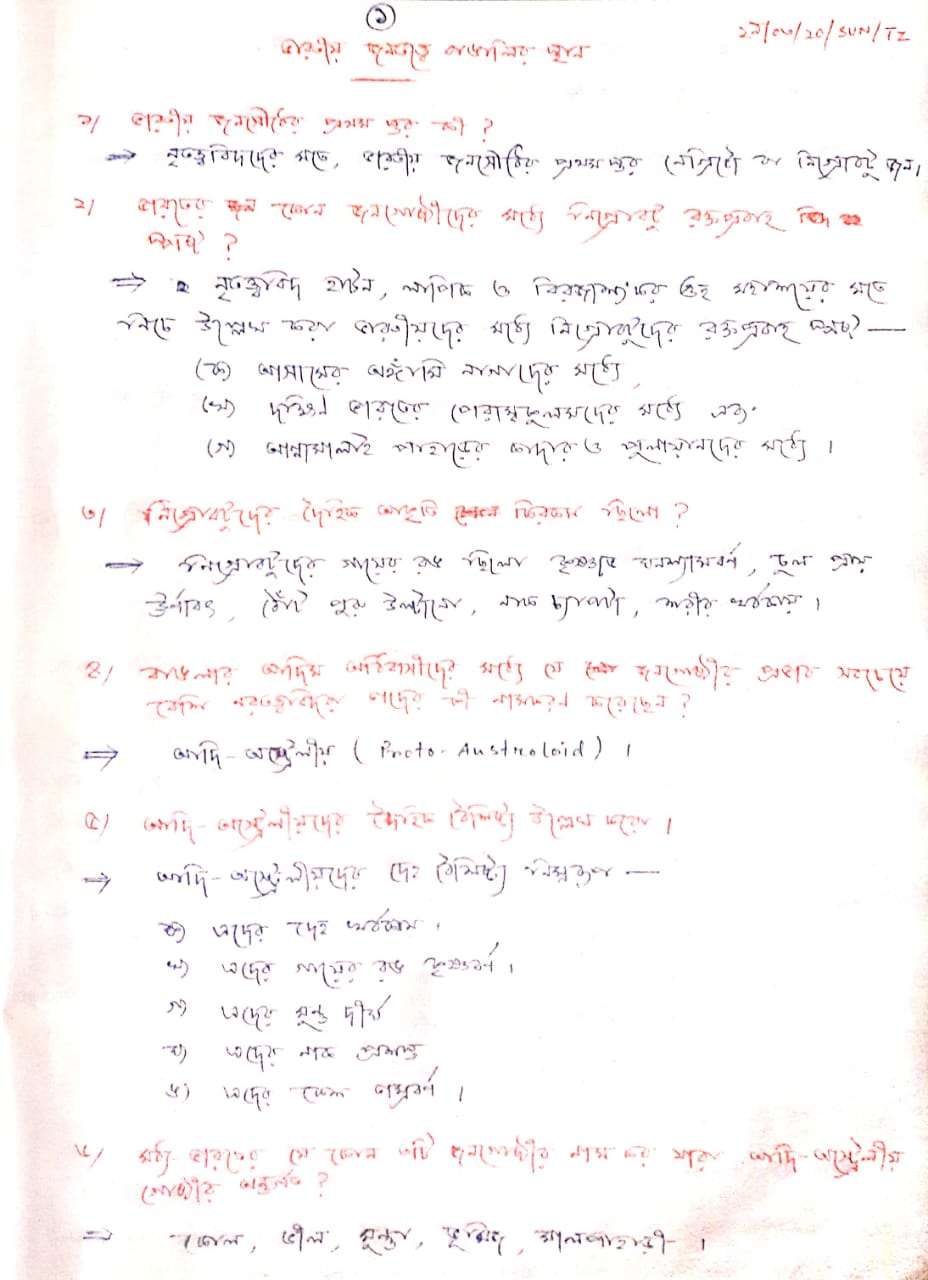 ১
২৯/০৩/২০/SUN/TZ
ভারতীয় জনতত্ত্বে বাঙালির স্থান
১/ ভারতীয় জনসৌধের প্রথম স্তর কী ?
⇒ নৃতত্ত্ববিদদের মতে, ভারতীয় জনসৌধের প্রথম স্তর নেগ্রিটো বা নিগ্রোবটু জন।
২/ ভারতের কোন জনগোষ্ঠীদের মধ্যে নিগ্রোবটু রক্তপ্রবাহ
স্পষ্ট ?
⇒ নৃতত্ত্ববিদ হাটন, লাপিক ও বিরজাশংকর গুহ মহাশয়ের মতে
নিচে উল্লেখ করা ভারতীয়দের মধ্যে নিগ্রোবটুদের রক্তপ্রবাহ স্পষ্ট —
(ক) আসামের অঙ্গামি নাগাদের মধ্যে,
(খ) দক্ষিণ ভারতের পেরাম্বকুলমদের মধ্যে এবং
(গ) আন্নামালাই পাহাড়ের কাদার ও পুলায়ানদের মধ্যে ।
৩/ নিগ্রোবটুদের দৈহিক আকৃতি কিরকম ছিলো ?
⇒ নিগ্রোবটুদের গায়ের রঙ ছিলো কৃষ্ণাভ ঘনশ্যামবর্ণ, চুল প্রায়
উর্ণাবৎ, ঠোঁট পুরু উল্টানো, নাক চ্যাপটা, শরীর খর্বকায় ।
৪/ বাঙলার আদিম অধিবাসীদের মধ্যে যে জনগোষ্ঠীর প্রভাব সবচেয়ে
বেশি নরতত্ত্ববিদরা তাদের কী নামকরণ করেছেন ?
⇒ আদি-অস্ট্রেলীয় ( Proto-Australoid ) ।
৫) আদি-অস্ট্রেলীয়দের দৈহিক বৈশিষ্ট্য উল্লেখ করো ।
⇒ আদি-অস্ট্রেলীয়দের দেহ বৈশিষ্ট্য নিম্নরূপ —
ক) এদের দেহ খর্বকায় ।
খ) এদের গায়ের রঙ কৃষ্ণবর্ণ ।
গ) এদের মুন্ড দীর্ঘ
ঘ) এদের নাক প্রশস্ত
ঙ) এদের কেশ তাম্রবর্ণ ।
৬/ মধ্য ভারতের যে কোন ৫টি জনগোষ্ঠীর নাম কর যারা আদি-অস্ট্রেলীয়
গোষ্ঠীর অন্তর্গত ?
⇒ কোল, ভীল, মুন্ডা, ভূমিজ, মালপাহাড়ী ।